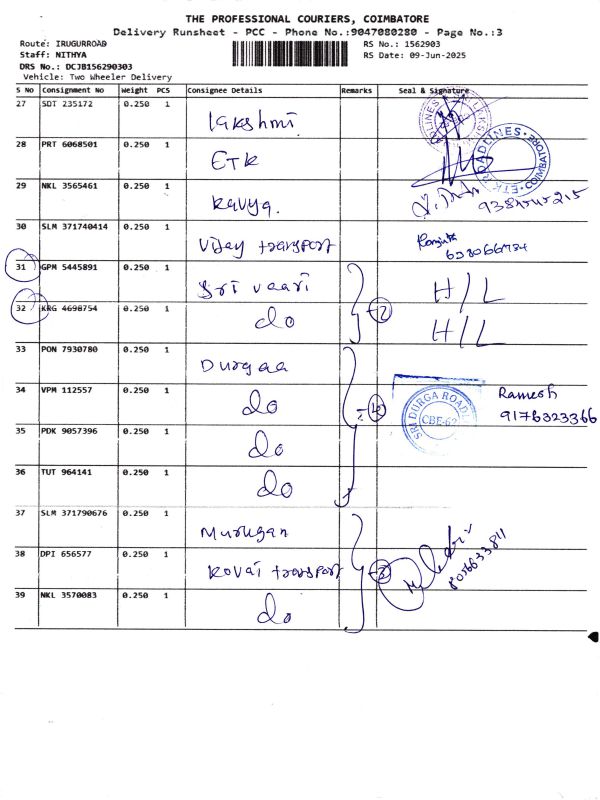 THE PROFESSIONAL COURIERS, COIMBATORE
Delivery Runsheet - PCC - Phone No.:9047080280 - Page No.:3
Route: IRUGURROAD
Staff: NITHYA
DRS No.: DCJB156290303
Vehicle: Two Wheeler Delivery
RS No.: 1562903
RS Date: 09-Jun-2025
S No Consignment No Weight PCS Consignee Details Remarks Seal & Signature
27 SDT 235172 0.250 1 lakshmi
28 PRT 6068501 0.250 1 ETK
ETK ROADLINES COIMBATORE
29 NKL 3565461 0.250 1 kavya.
30 SLM 371740414 0.250 1 Vijay transport
31 GPM 5445891 0.250 1 Sri vaari H/L
32 KRG 4698754 0.250 1 do 2 H/L
33 PON 7930780 0.250 1 Durgaa
34 VPM 112557 0.250 1 do 4 Ramesh
9176323366
SRI DURGA ROAD
CBE-62
35 PDK 9057396 0.250 1 do
36 TUT 964141 0.250 1 do
37 SLM 371790676 0.250 1 Murugan
38 DPI 656577 0.250 1 kovai transport 3
39 NKL 3570083 0.250 1 do